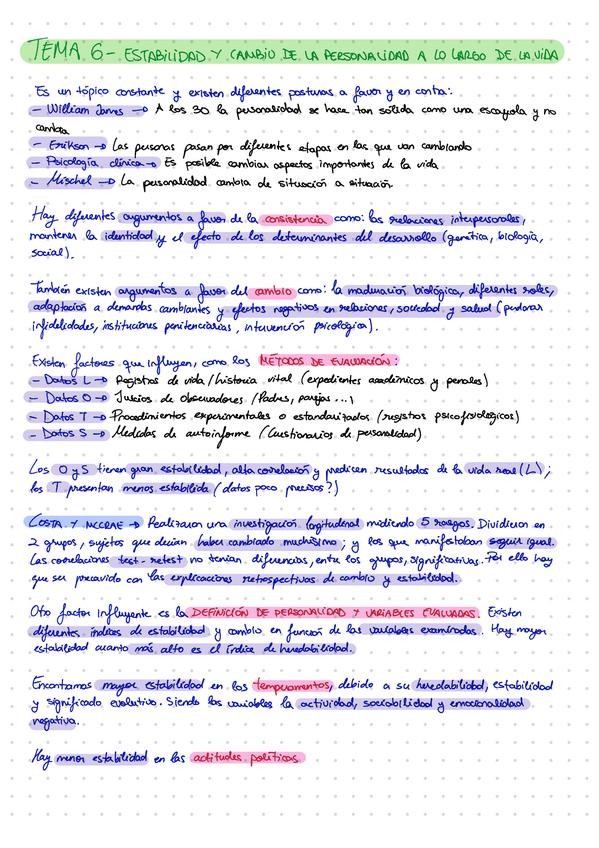 TEMA 6 - ESTABILIDAD Y CAMBIO DE LA PERSONALIDAD A LO LARGO DE LA VIDA
Es un tópico constante y existen diferentes posturas a favor y en contra:
- William James → A los 30 la personalidad se hace tan sólida como una escayola y no
cambia
- Erikson → Las personas pasan por diferentes etapas en las que van cambiando
- Psicología clínica → Es posible cambiar aspectos importantes de la vida
- Mischel → La personalidad cambia de situación a situación
Hay diferentes argumentos a favor de la consistencia como: las relaciones interpersonales,
mantener la identidad y el efecto de los determinantes del desarrollo (genética, biología,
social).
También existen argumentos a favor del cambio como: la maduración biológica, diferentes roles,
adaptación a demandas cambiantes y efectos negativos en relaciones, sociedad y salud (perdonar
infidelidades, instituciones penitenciarias, intervención psicológica).
Existen factores que influyen, como los MÉTODOS DE EVALUACIÓN:
- Datos L → Registros de vida / historia vital (expedientes académicos y penales)
- Datos O → Juicios de observadores (Padres, parejas ...)
- Datos T → Procedimientos experimentales o estandarizados (registros psicofisiológicos)
- Datos S → Medidas de autoinforme (Cuestionarios de personalidad)
Los O y S tienen gran estabilidad, alta correlación y predicen resultados de la vida real (L);
los T presentan menos estabilida (datos poco precisos?)
COSTA Y MCCRAE → Realizaron una investigación longitudinal midiendo 5 rasgos. Dividieron en
2 grupos, sujetos que decían haber cambiado muchísimo; y los que manifestaban seguir igual.
Las correlaciones test-retest no tenían diferencias, entre los grupos, significativas. Por ello hay
que ser precavido con las explicaciones retrospectivas de cambio y estabilidad.
Otro factor influyente es la DEFINICIÓN DE PERSONALIDAD Y VARIABLES EVALUADAS. Existen
diferentes índices de estabilidad y cambio en función de las variables examinadas. Hay mayor
estabilidad cuanto más alto es el índice de heredabilidad.
Encontramos mayor estabilidad en los temperamentos, debido a su heredabilidad, estabilidad
y significado evolutivo. Siendo las variables la actividad, sociabilidad y emocionalidad
negativa.
Hay menor estabilidad en las actitudes políticas